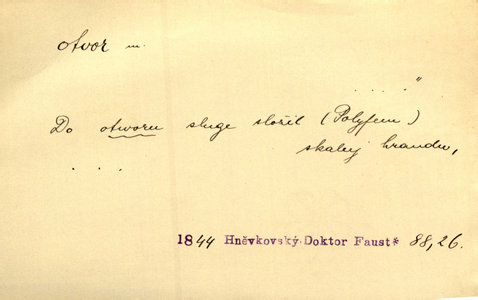 otvor m.
. . . . "
Do otworu sluge složil (Polyfem)
skalnj hrandu,
. . .
1844 Hněvkovský-Doktor Faust* 88,26.